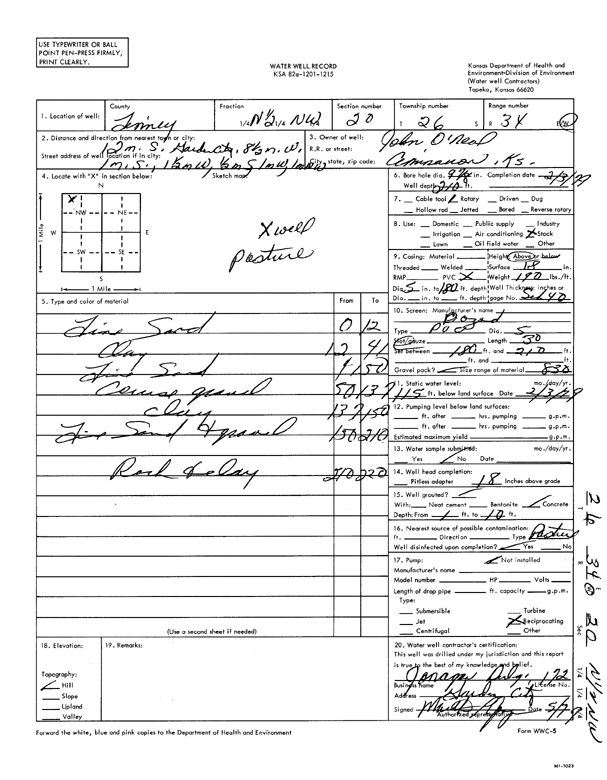 USE TYPEWRITER OR BALL
POINT PEN-PRESS FIRMLY,
PRINT CLEARLY.
WATER WELL RECORD
KSA 82a-1201-1215
Kansas Department of Health and
Environment-Division of Environment
(Water well Contractors)
Topeka, Kansas 66620
1. Location of well: County Finney Fraction 1/4 N½ 1/4 NW Section number 20 Township number T 26 S Range number R 34 E/W
2. Distance and direction from nearest town or city: 12 m. S. Garden City, 8½ m. W.
Street address of well location if in city: 1 m. S., 1½ m W, ½ m S 1 m W, 1 m N
3. Owner of well: John O'Neal
R.R. or street:
City, state, zip code: Ks.
4. Locate with "X" in section below: Sketch map:
N
X
NW NE
W E
SW SE
S
1 Mile
1 Mile
X well
Pasture
6. Bore hole dia. in. Completion date 2/3/79
Well depth 210 ft.
7. Cable tool ✓ Rotary Driven Dug
Hollow rod Jetted Bored Reverse rotary
8. Use: Domestic Public supply Industry
Irrigation Air conditioning X Stock
Lawn Oil field water Other
9. Casing: Material Height: Above or below
Threaded Welded Surface 18 in.
RMP PVC X Weight lbs./ft.
Dia. 5 in. to 180 ft. depth Wall Thickness: inches or
Dia. in. to ft. depth gage No.
5. Type and color of material From To
Fine Sand 0 12
Clay 12 41
Fine Sand 41 50
Course gravel 50 137
Clay 137 150
Fine Sand & gravel 150 210
Rock & clay 210 220
(Use a second sheet if needed)
10. Screen: Manufacturer's name
Type Dia. 5
Slot/gauze Length 30
Set between 180 ft. and 210 ft.
ft. and ft.
Gravel pack? ✓ Size range of material 830
11. Static water level: mo./day/yr.
115 ft. below land surface Date 2/3/79
12. Pumping level below land surfaces:
ft. after hrs. pumping g.p.m.
ft. after hrs. pumping g.p.m.
Estimated maximum yield g.p.m.
13. Water sample submitted: mo./day/yr.
Yes ✓ No Date
14. Well head completion:
Pitless adapter 18 Inches above grade
15. Well grouted? ✓
With: Neat cement Bentonite ✓ Concrete
Depth: From ft. to 10 ft.
16. Nearest source of possible contamination:
ft. Direction Type Pasture
Well disinfected upon completion? ✓ Yes No
17. Pump: ✓ Not installed
Manufacturer's name
Model number HP Volts
Length of drop pipe ft. capacity g.p.m.
Type:
Submersible Turbine
Jet X Reciprocating
Centrifugal Other
18. Elevation:
Topography:
✓ Hill
Slope
Upland
Valley
19. Remarks:
20. Water well contractor's certification:
This well was drilled under my jurisdiction and this report
is true to the best of my knowledge and belief.
172
Business name License No.
Address Garden City
Signed Date
Authorized representative
Forward the white, blue and pink copies to the Department of Health and Environment
Form WWC-5
T 26 R 34 E W Sec 20 1/4 1/4 1/4 N½ NW